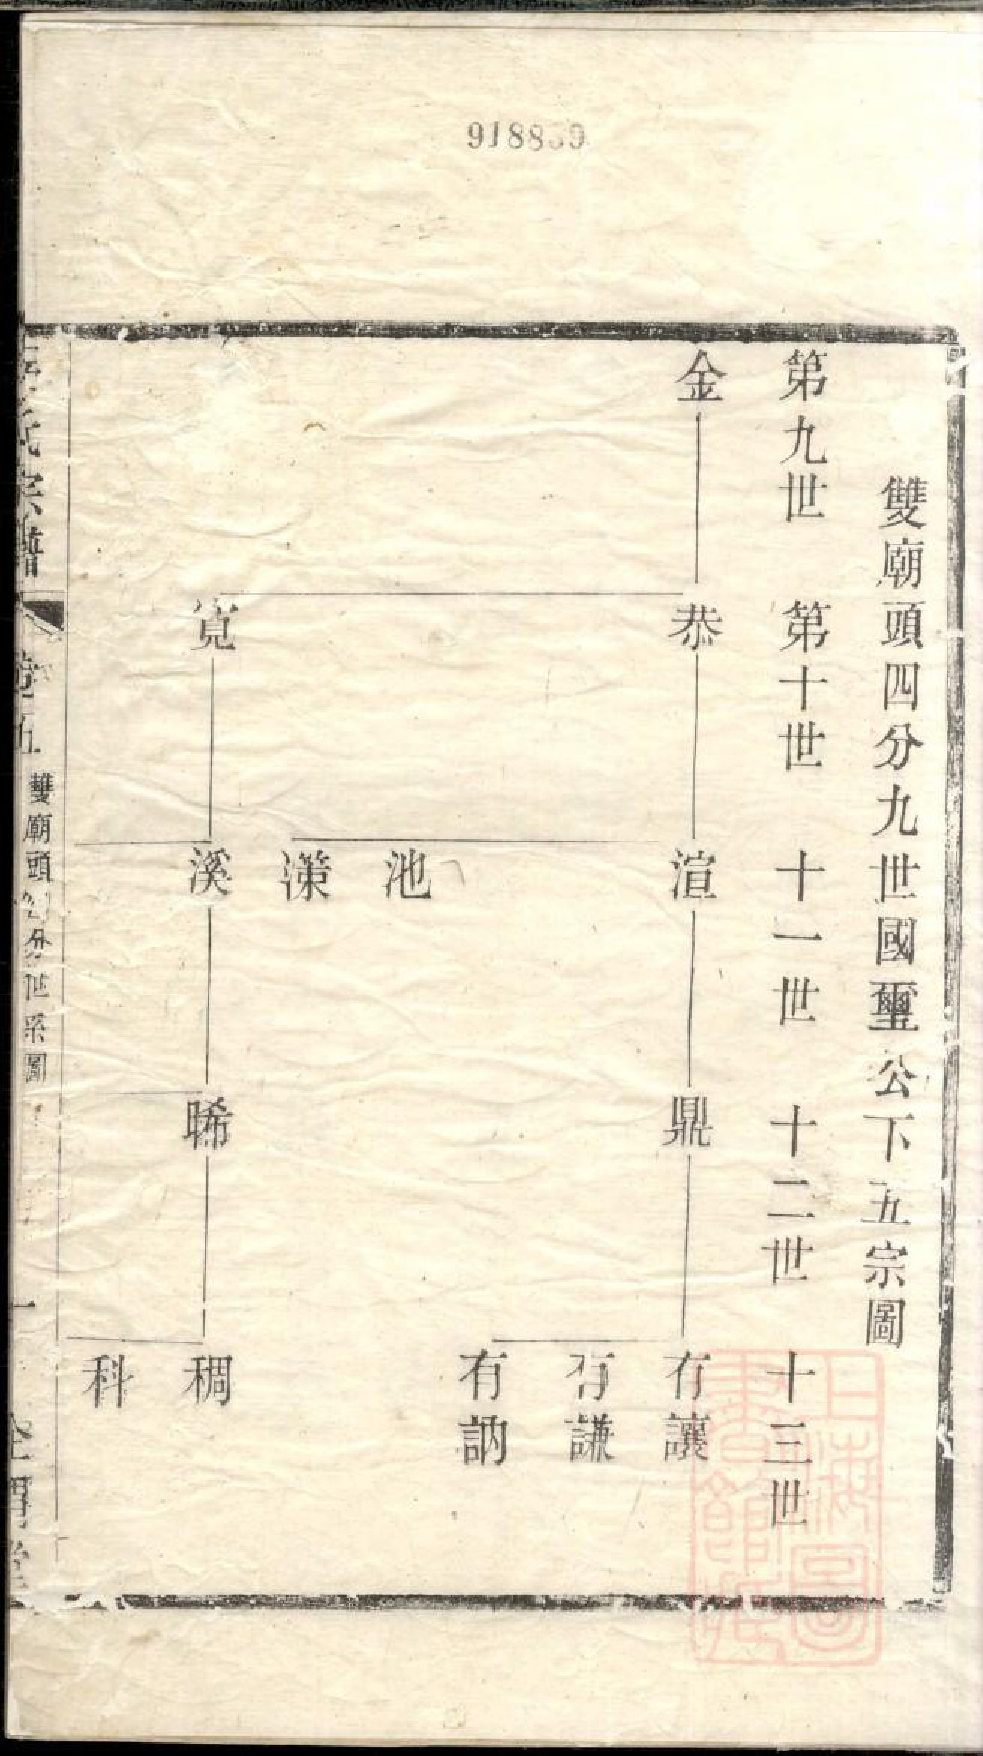 雙廟頭四分九世國璽公下五宗圖
第九世 第十世 十一世 十二世 十三世
金 恭 渲 鼎 有讓
有謙
有訥
池
濴
寬 溪 晞 稠
科
氏宗譜 卷五 雙廟頭四分世系圖 一
上海圖書館藏